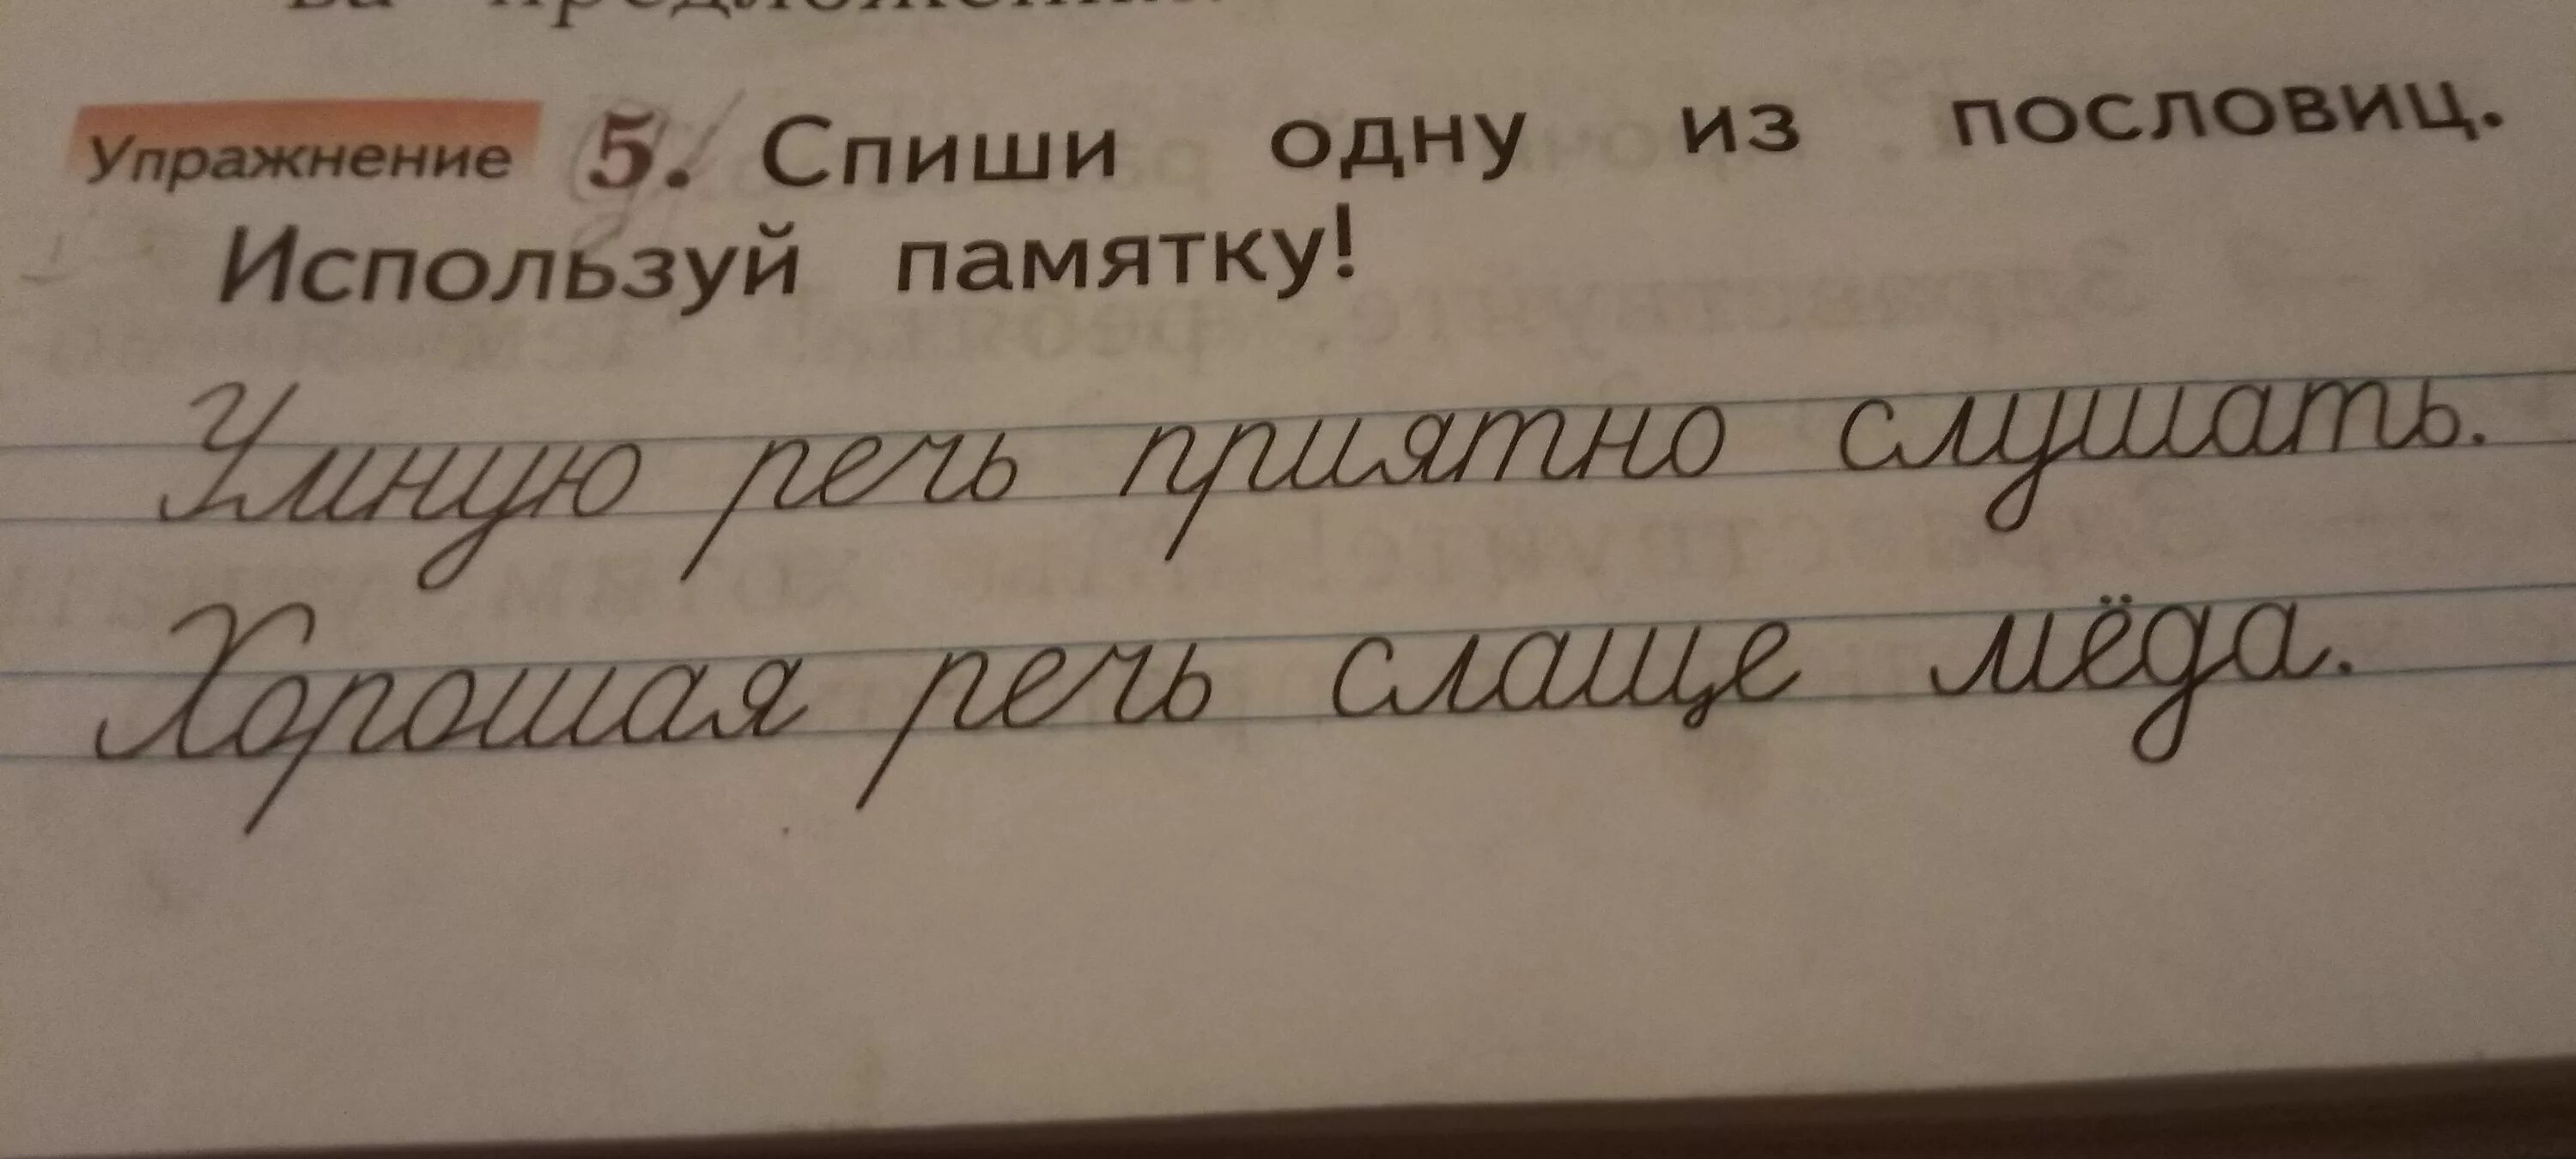 ва предложения.
Упражнение 5. Спиши одну из пословиц.
Используй памятку!
Умную речь приятно слушать.
Хорошая речь слаще мёда.